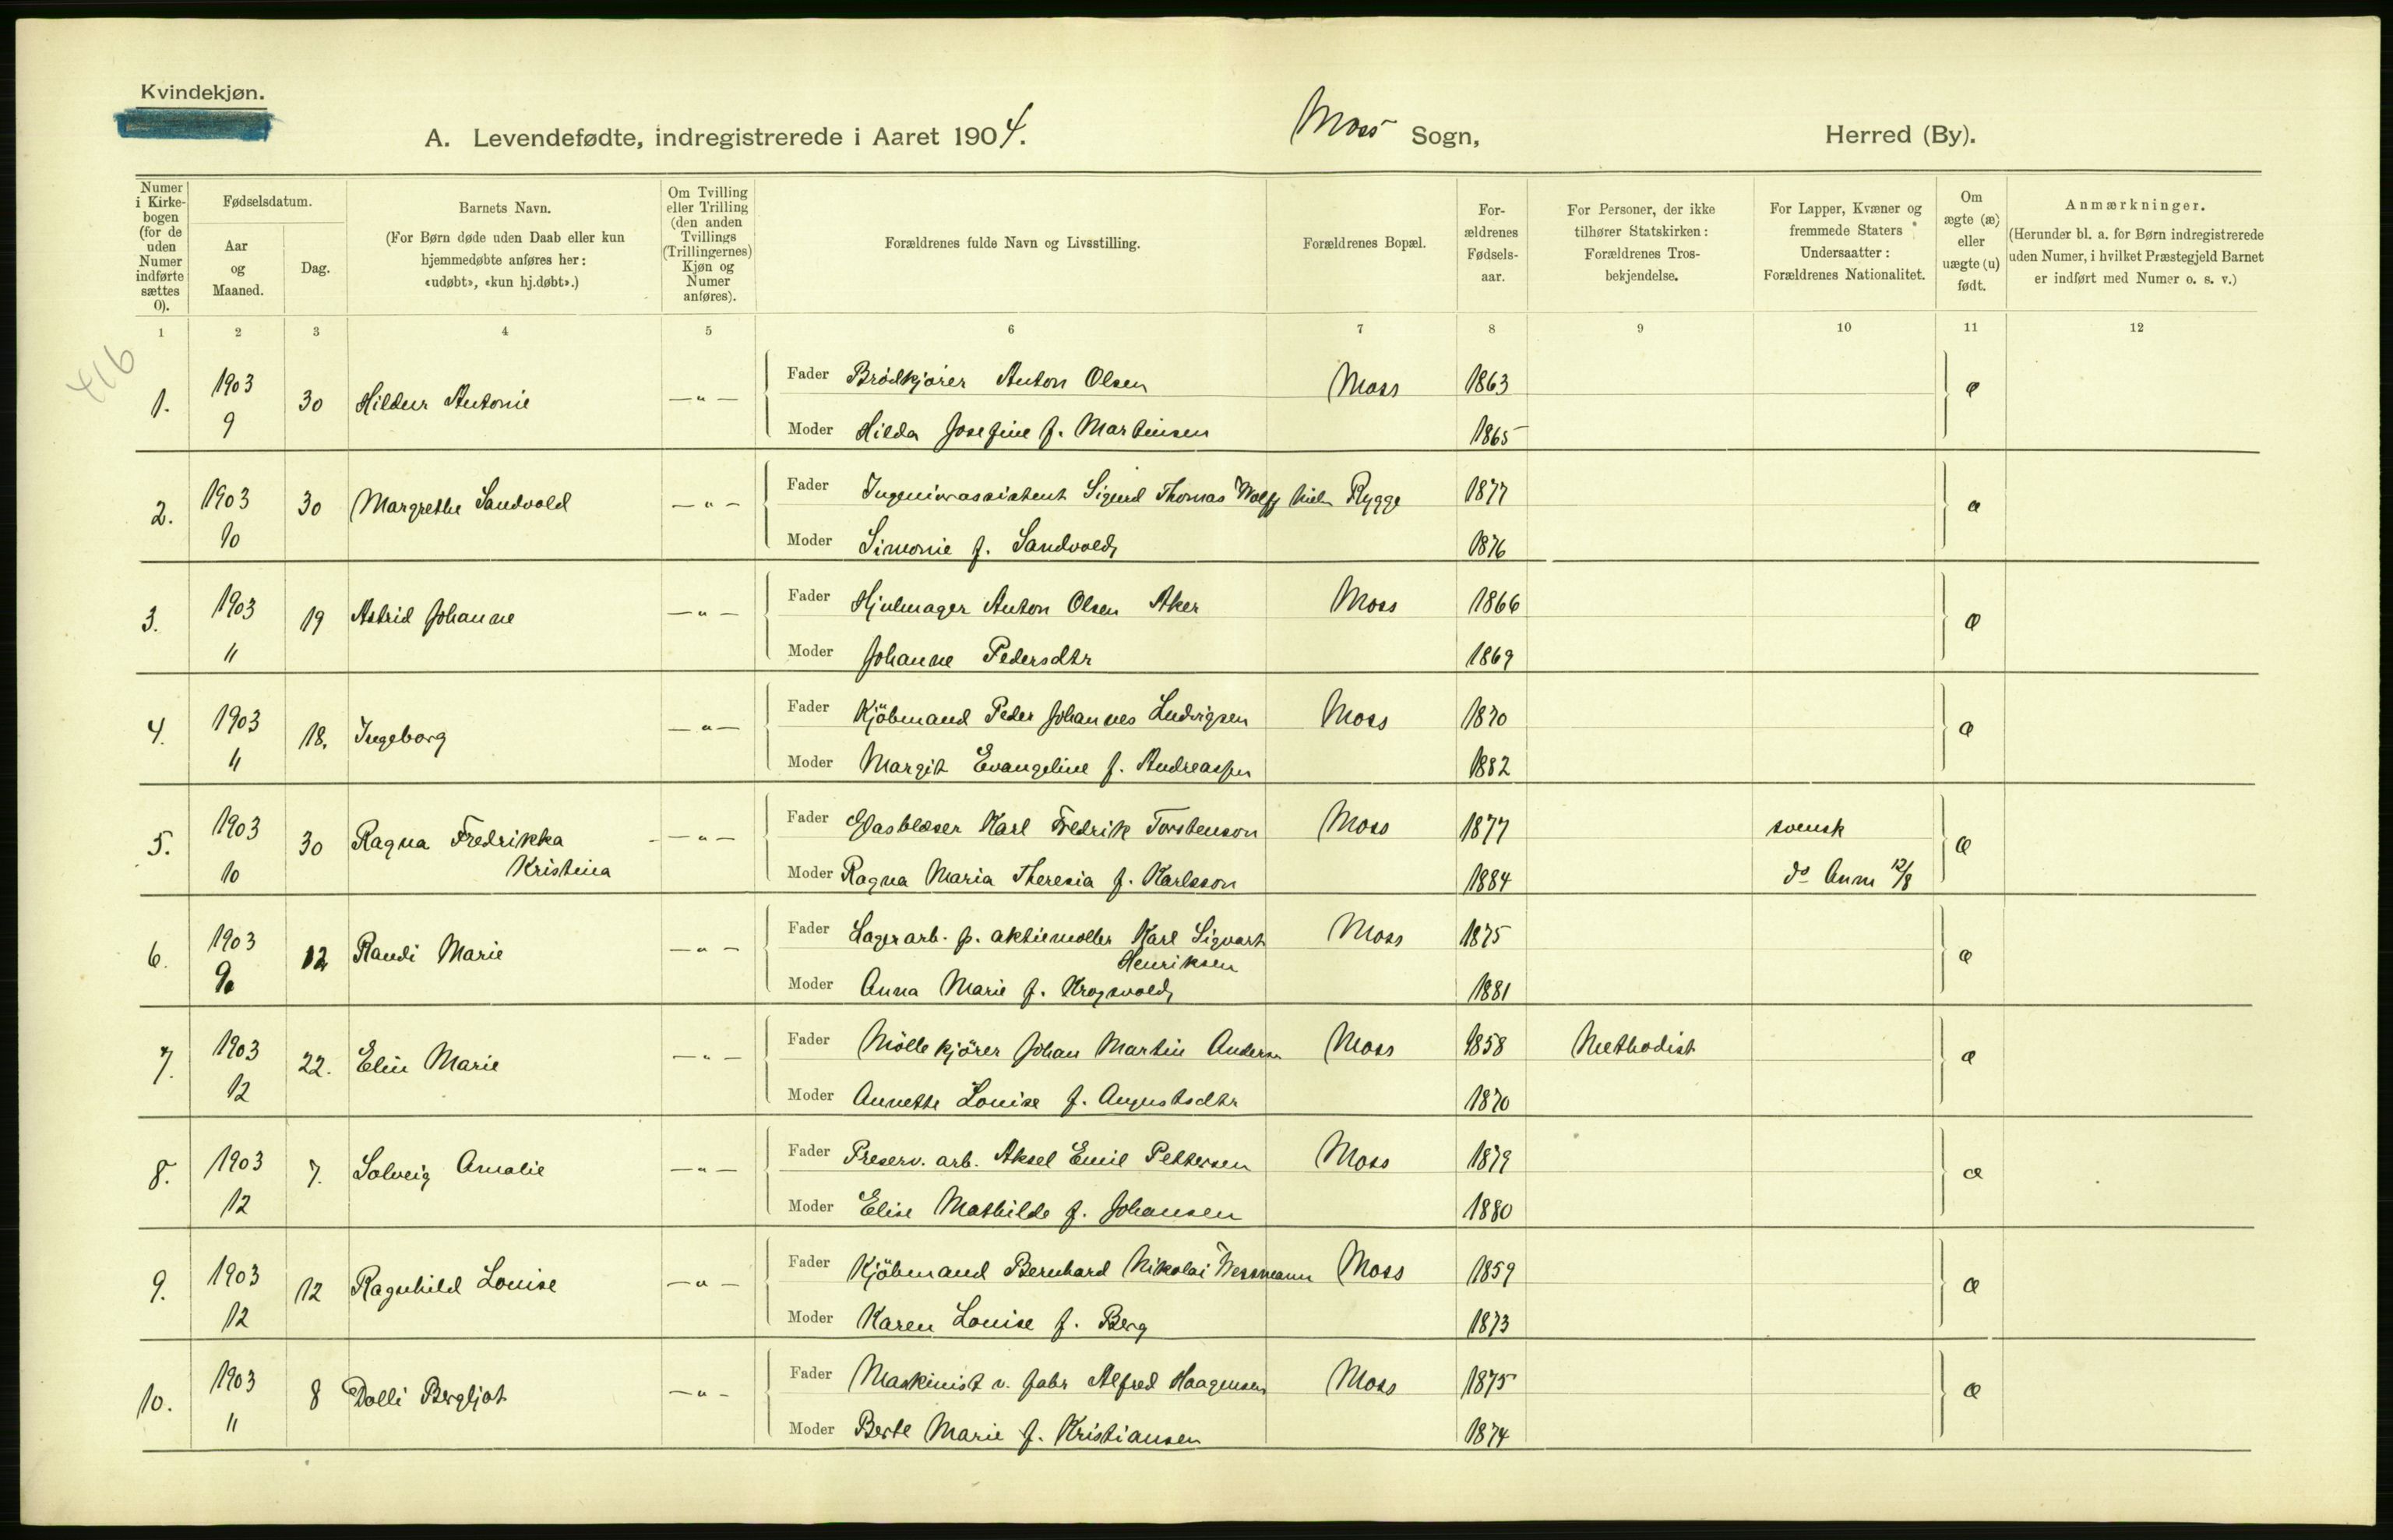 Kvindekjøn.
A. Levendefødte, indregistrerede i Aaret 1904. Moss Sogn, Herred (By).
Numer i Kirkebogen (for de uden Numer indførte sættes 0).
Fødselsdatum.
Aar og Maaned.
Dag.
Barnets Navn.
(For Børn døde uden Daab eller kun hjemmedøbte anføres her: «udøbt», «kun hj.døbt».)
Om Tvilling eller Trilling (den anden Tvillings (Trillingernes) Kjøn og Numer anføres).
Forældrenes fulde Navn og Livsstilling.
Forældrenes Bopæl.
Forældrenes Fødselsaar.
For Personer, der ikke tilhører Statskirken: Forældrenes Trosbekjendelse.
For Lapper, Kvæner og fremmede Staters Undersaatter: Forældrenes Nationalitet.
Om ægte (æ) eller uægte (u) født.
Anmærkninger.
(Herunder bl. a. for Børn indregistrerede uden Numer, i hvilket Præstegjeld Barnet er indført med Numer o. s. v.)
1 2 3 4 5 6 7 8 9 10 11 12
416
1. 1903 9 30 Hildur Antonie —"— Fader Brödkjører Anton Olsen Moss 1863 æ
Moder Hilda Josefine f. Martinsen 1865
2. 1903 10 30 Margrethe Sandvold —"— Fader Ingeniørassistent Sigurd Thomas Wolff Rygge 1877 æ
Moder Simonie f. Sandvold 1876
3. 1903 11 19 Astrid Johanne —"— Fader Hjulmager Anton Olsen Aker Moss 1866 æ
Moder Johanne Pedersdtr 1869
4. 1903 11 18. Ingeborg —"— Fader Kjöbmand Peder Johannes Ludvigsen Moss 1870 æ
Moder Margit Evangeline f. Andreassen 1882
5. 1903 10 30 Ragna Fredrikka Kristina —"— Fader Glasblæser Karl Fredrik Torstenson Moss 1877 svensk æ
Moder Ragna Maria Theresia f. Karlsson 1884 do Anm 12/8
6. 1903 9 12 Randi Marie —"— Fader Lagerarb. p. aktiemøllen Karl Sigvart Henriksen Moss 1875 æ
Moder Anna Marie f. Krogsvold 1881
7. 1903 12 22. Elin Marie —"— Fader Möllekjörer Johan Martin Andersen Moss 1858 Methodist æ
Moder Annette Louise f. Augustsdtr 1870
8. 1903 12 7. Solveig Amalie —"— Fader Preserv. arb. Aksel Emil Pettersen Moss 1879 æ
Moder Elise Mathilde f. Johansen 1880
9. 1903 12 12 Ragnhild Louise —"— Fader Kjöbmand Bernhard Nikolai Wessmann Moss 1859 æ
Moder Karen Louise f. Berg 1873
10. 1903 11 8 Dolli Bergljot —"— Fader Maskinist v. fabr Alfred Haagensen Moss 1875 æ
Moder Berte Marie f. Kristiansen 1874